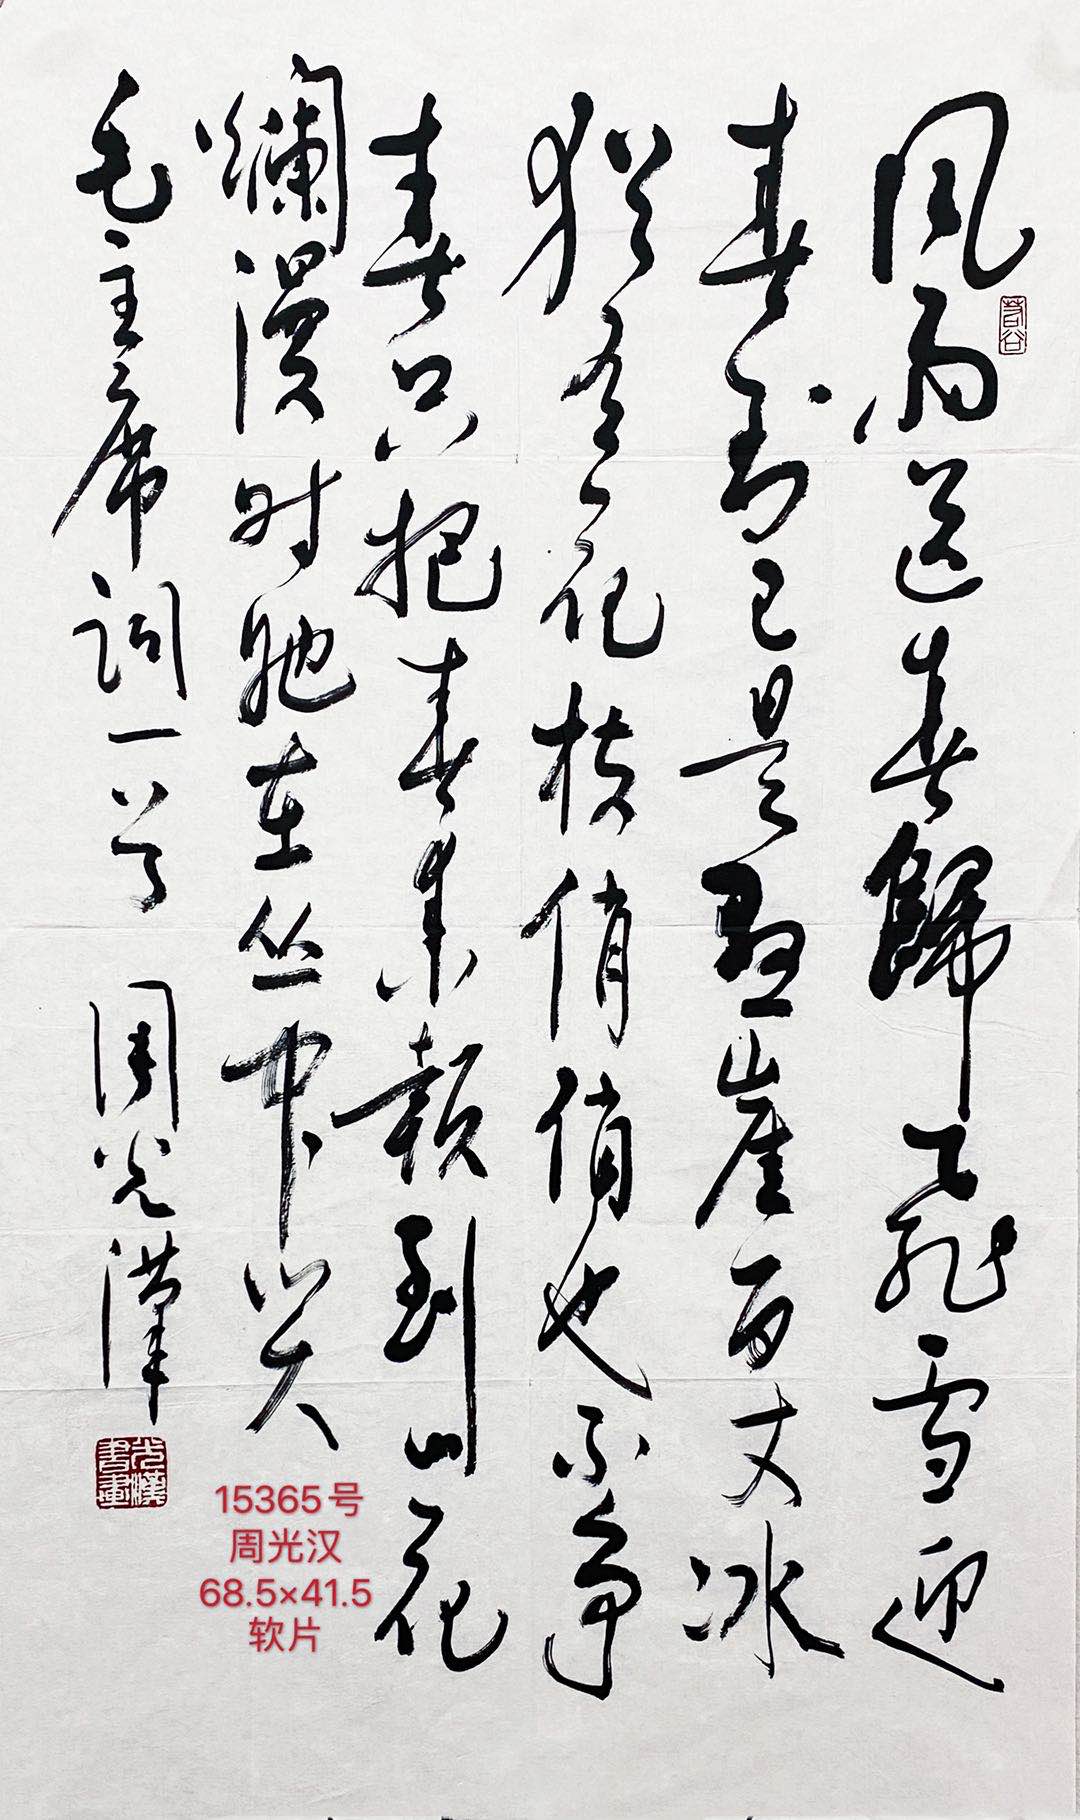 风雨送春歸飛雪迎
春到已是悬崖百丈冰
犹有花枝俏俏也不争
春只把春来報到山花
爛漫时她在丛中笑
毛主席词一首 周光漢
光漢書畫
15365号
周光汉
68.5×41.5
软片